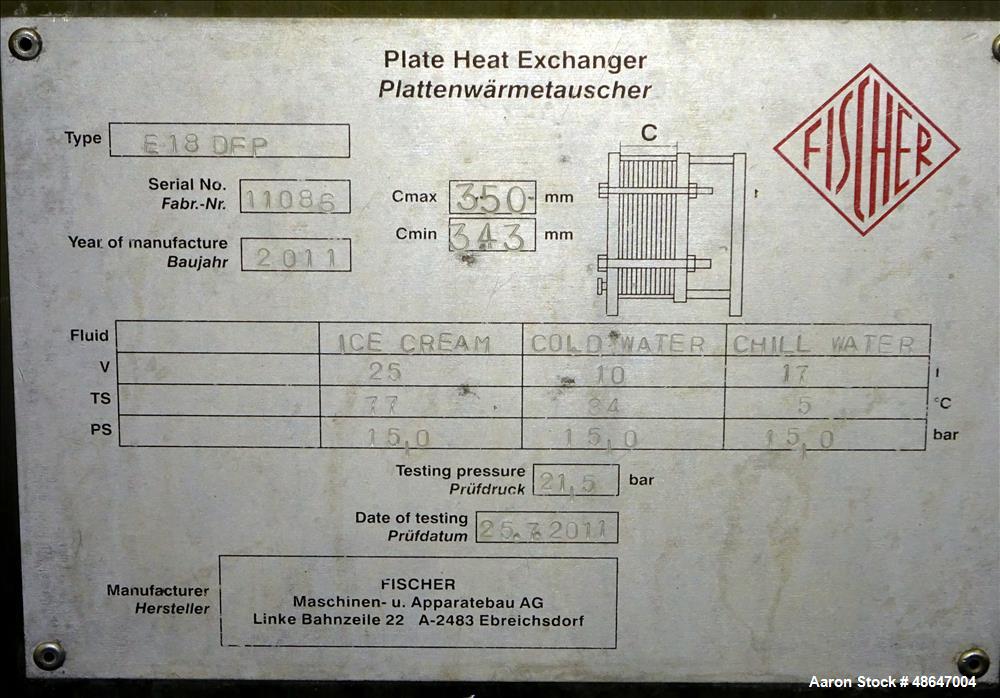 Plate Heat Exchanger
Plattenwärmetauscher
FISCHER
C
Type E 18 DFP
Serial No. 11086
Fabr.-Nr.
Cmax 350 mm
Cmin 343 mm
Year of manufacture 2011
Baujahr
Fluid ICE CREAM COLD WATER CHILL WATER
V 25 10 17 l
TS 77 34 5 °C
PS 15,0 15,0 15,0 bar
Testing pressure 21,5 bar
Prüfdruck
Date of testing 25.7.2011
Prüfdatum
Manufacturer
Hersteller
FISCHER
Maschinen- u. Apparatebau AG
Linke Bahnzeile 22 A-2483 Ebreichsdorf
Aaron Stock # 48647004